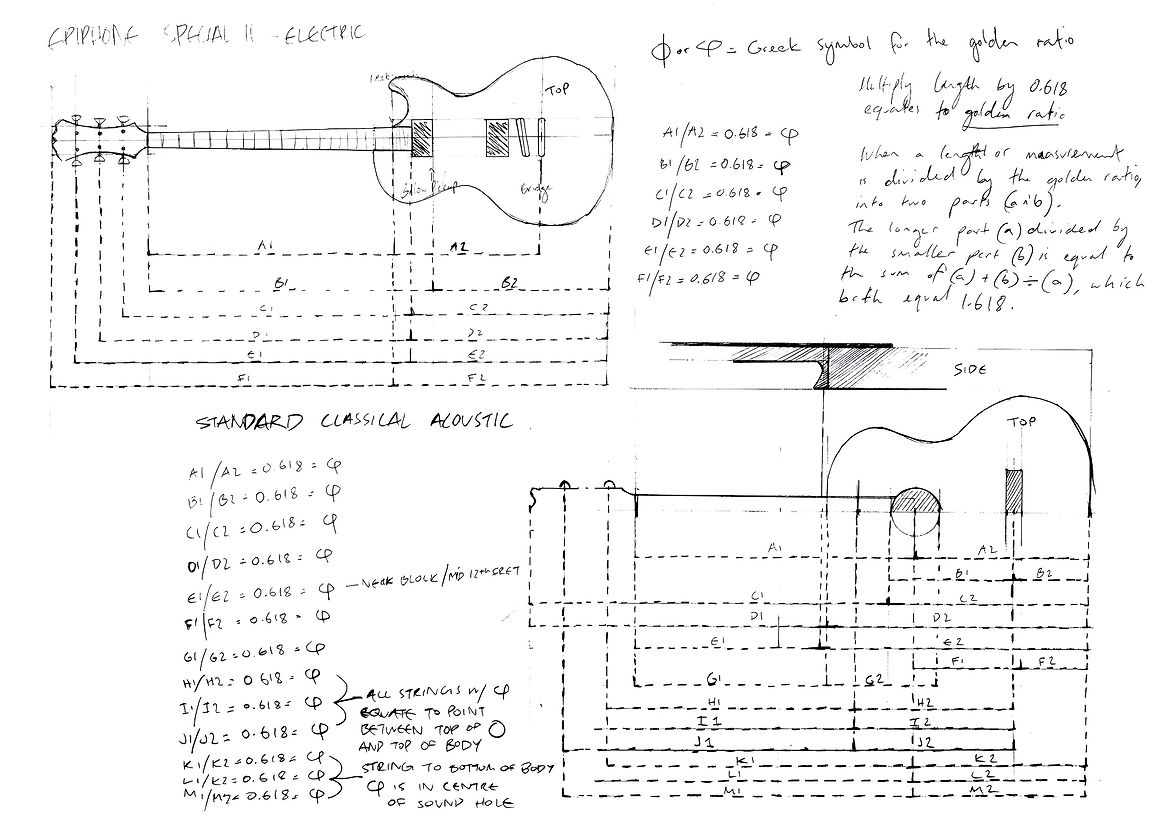 EPIPHONE SPECIAL II - ELECTRIC
TOP
Bridge
A1 A2
B1 B2
C1 C2
D1 D2
E1 E2
F1 F2
ϕ or φ = Greek symbol for the golden ratio
Multiply length by 0.618
equates to golden ratio
A1/A2 = 0.618 = φ
B1/B2 = 0.618 = φ
C1/C2 = 0.618 = φ
D1/D2 = 0.618 = φ
E1/E2 = 0.618 = φ
F1/F2 = 0.618 = φ
When a length or measurement
is divided by the golden ratio,
into two parts (a+b).
The longer part (a) divided by
the smaller part (b) is equal to
the sum of (a) + (b) ÷ (a), which
both equal 1.618.
STANDARD CLASSICAL ACOUSTIC
A1/A2 = 0.618 = φ
B1/B2 = 0.618 = φ
C1/C2 = 0.618 = φ
D1/D2 = 0.618 = φ
E1/E2 = 0.618 = φ - NECK BLOCK/MID 12th FRET
F1/F2 = 0.618 = φ
G1/G2 = 0.618 = φ
H1/H2 = 0.618 = φ
I1/I2 = 0.618 = φ
J1/J2 = 0.618 = φ
ALL STRINGS W/ φ
EQUATE TO POINT
BETWEEN TOP OF O
AND TOP OF BODY
K1/K2 = 0.618 = φ
L1/K2 = 0.618 = φ
M1/M2 = 0.618 = φ
STRING TO BOTTOM OF BODY
φ IS IN CENTRE
OF SOUND HOLE
SIDE
TOP
A1 A2
B1 B2
C1 C2
D1 D2
E1 E2
F1 F2
G1 G2
H1 H2
I1 I2
J1 J2
K1 K2
L1 L2
M1 M2